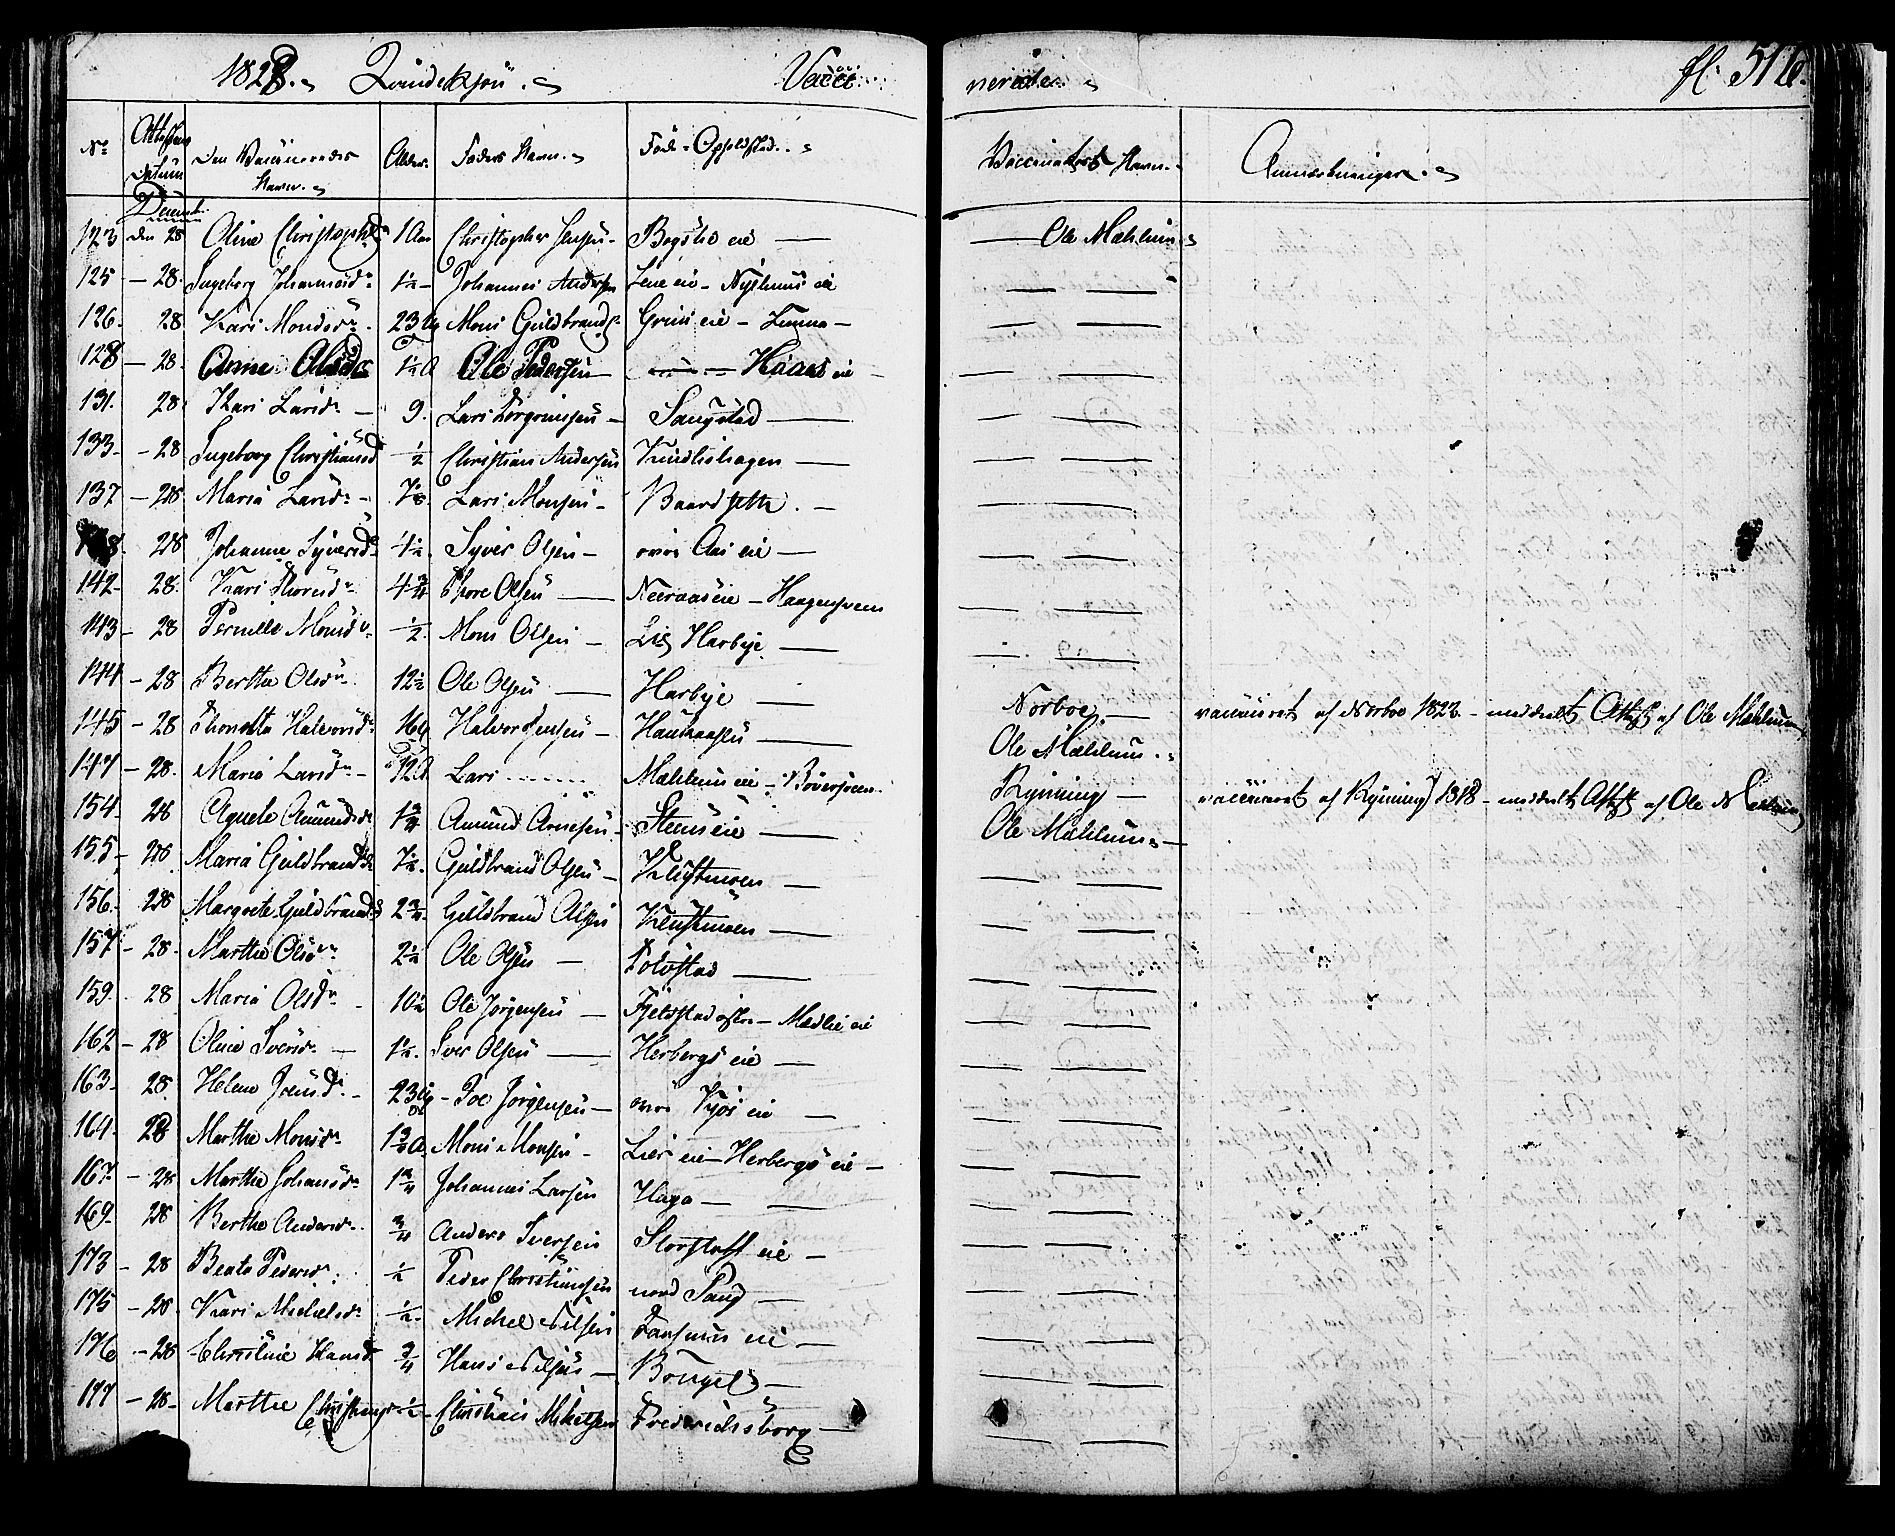 1828. Quindekjøn. Vacci nerede. fl. 516.
No Attestens Datum Den Vaccineredes Navn. Alder. Faders Navn. Føde- Opholdsted. Vaccinateurs Navn. Anmærkninger.
Decembr.
123 den 28 Oline Christophd. 1 Aar Christopher Jensen Bogstie eie — Ole Mæhlum
125 — 28. Ingeborg Johannesd. 1½ Johannes Andersen Lene eie — Nyehuus eie
126. 28 Kari Monsd. 23 Mons Guldbrands. Griis eie —
128 — 28. Anne Olsd. 1½ A Ole Pedersen — Haaes eie
131. 28. Kari Larsd. — 9. Lars Torgrimsen — Sangstad —
133 — 28 Ingeborg Christiansd ½ Christian Andersen —
137 — 28 Maria Larsd. — 7½ Lars Monsen — Baardseth. —
28 Johanne Syversd. 4½ Syver Olsen — øvre Aas eie —
142 — 28. Kari Thoresd. 4¾ Thore Olsen — Neeraas eie — Haagensveen
143 — 28 Pernille Monsd. ½ Mons Olsen — Lie Harbye —
144 — 28 Berthe Olsd. 12½ Ole Olsen — Harbye — Norboe. — vaccineret af Norboe 1822 — meddeelt Attest af Ole Mæhlum
145 — 28 Thonetta Halvorsd. 16 Halvor Jensen — — Ole Mæhlum
147 — 28. Maria Larsd. — 12 Lars ...... Mæhlum eie — Bøversveen Kyning — vaccineret af Kyning 1818 — meddeelt Attest af Ole Mæhlum
154. 28 Agnete Amundsd. 1¾ Amund Arnesen — Steens eie — Ole Mæhlum —
155 — 28. Maria Guldbrandsd. 7½ Guldbrand Olsen — Kluftmoen —
156. — 28 Margrete Guldbrandsd 2¾ Guldbrand Olsen Kluftmoen —
157 — 28. Marthe Olsd. 2½ Ole Olsen — Tolvstad —
159. 28 Maria Olsd. — 10½ Ole Jørgensen — Fjelstad østre — Mælie eie
162 — 28 Oline Iversd. — 1½. Iver Olsen — Herbergs eie —
163 — 28. Helene Joensd. 23 — Joe Jørgensen — øvre eie —
164. 28 Marthe Monsd. 1¾ A. Mons Monsen — Lier eie — Herbergs eie —
167. — 28 Marthe Johansd. 1¾ Johannes Larsen Haga —
169. 28 Berthe Andersd. ¾ Anders Iversen Storstuff eie —
173 — 28 Beate Pedersd. ½ Peder Christiansen nord Pang —
175 — 28. Kari Michelsd. ½. Michel Nilsen eie —
176 — 28 Christine Hansd ¾ Hans Nilsen — —
177 — 28 — Marthe ½ — Christian Mikelsen Frederichsborg —